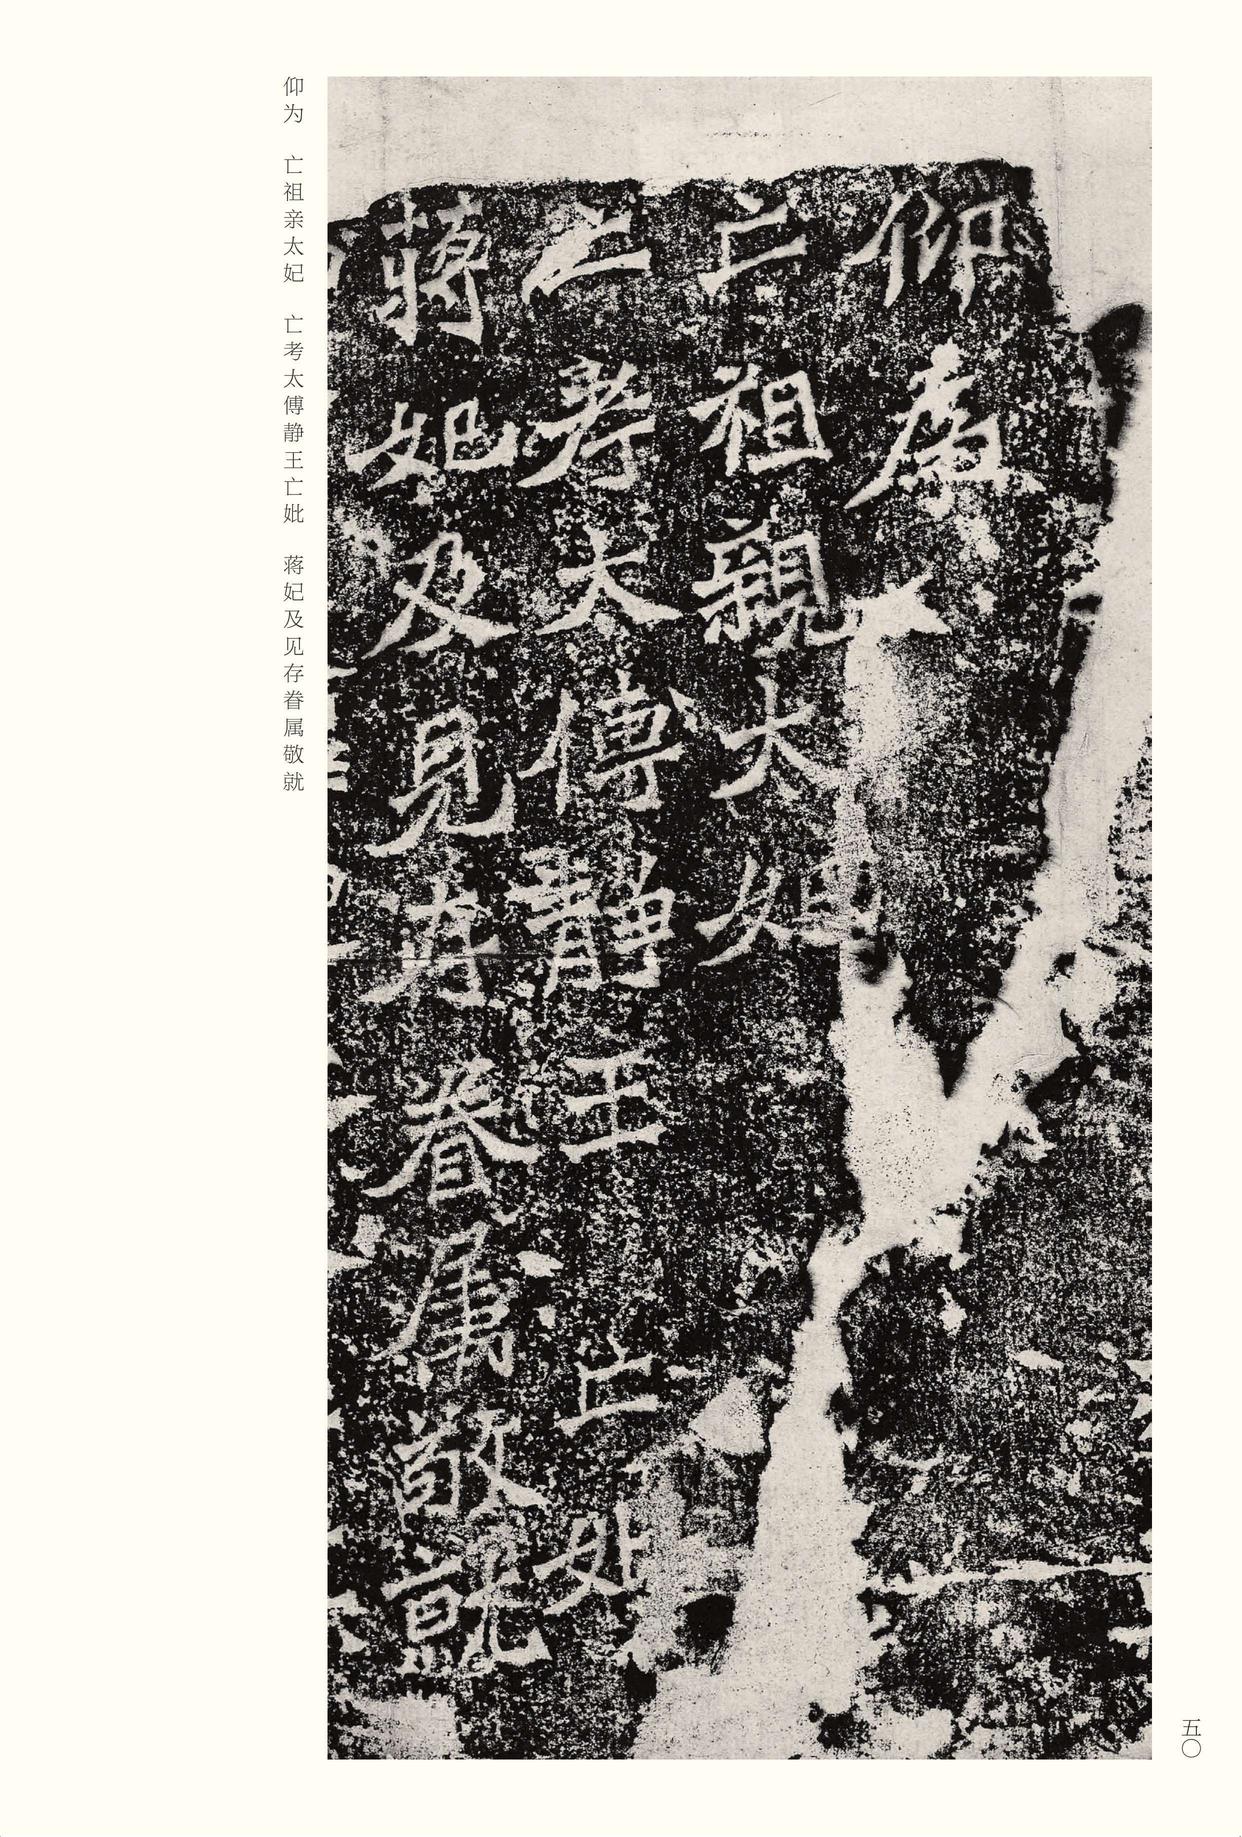 仰為
亡祖親太妃
亡考太傅靜王亡妣
蔣妃及見存眷属敬就
仰为　亡祖亲太妃　亡考太傅静王亡妣　蒋妃及见存眷属敬就
五〇